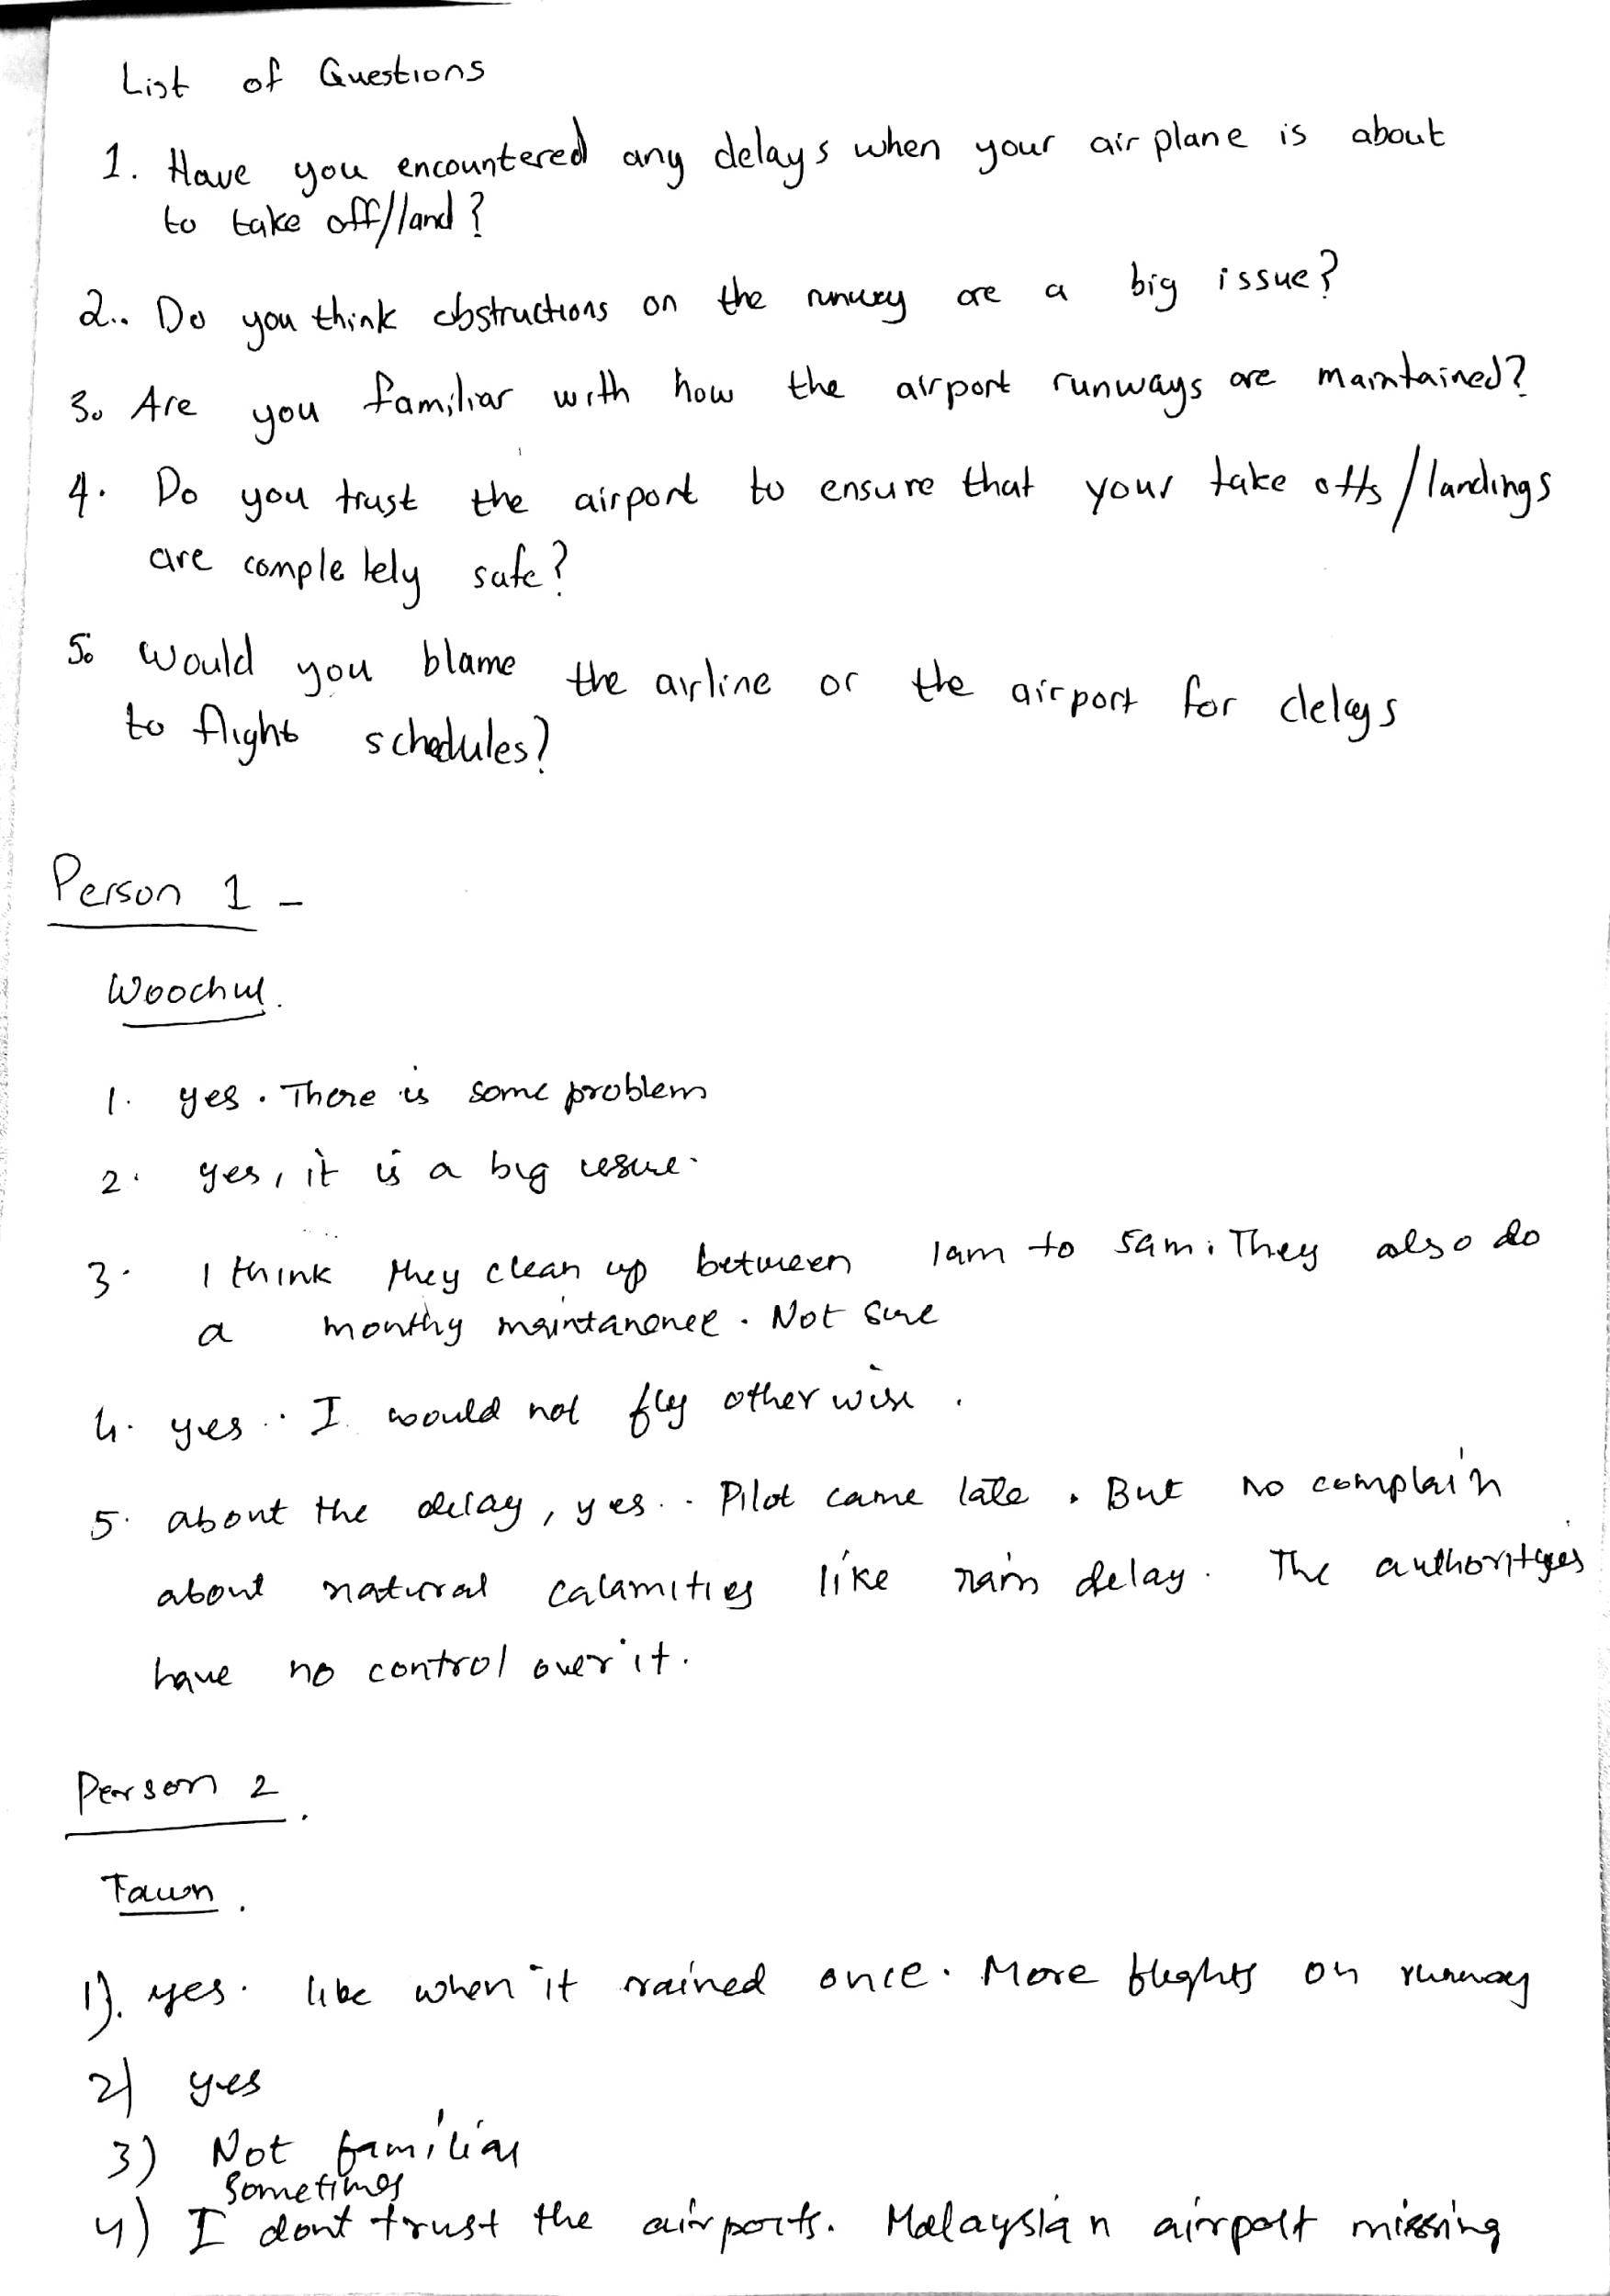 List of Questions
1. Have you encountered any delays when your airplane is about
to take off/land?
2.. Do you think obstructions on the runway are a big issue?
3. Are you familiar with how the airport runways are maintained?
4. Do you trust the airport to ensure that your take offs/landings
are completely safe?
5. Would you blame the airline or the airport for delays
to flight schedules?
Person 1 -
Woochul.
1. yes. There is some problem
2. yes, it is a big issue.
3. I think they clean up between 1am to 5am. They also do
a monthy maintanence. Not sure
4. yes. I would not fly otherwise.
5. about the delay, yes. Pilot came late. But no complain
about natural calamities like rain delay. The authorities
have no control over it.
Person 2.
Fawn.
1). yes. like when it rained once. More flights on runway
2) yes
3) Not familiar
Sometimes
4) I dont trust the airports. Malaysian airport missing